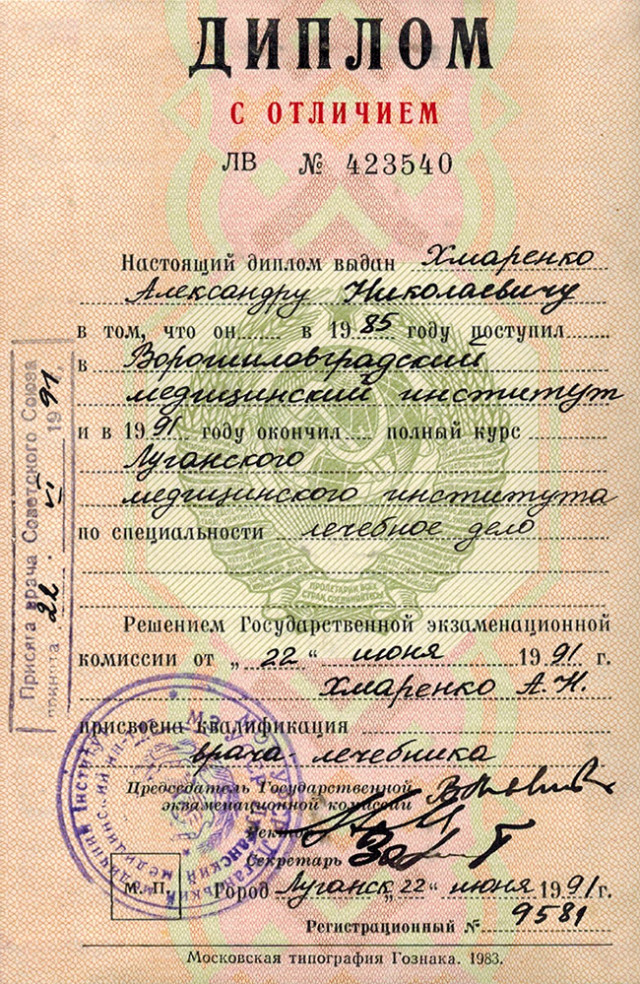 ДИПЛОМ
С ОТЛИЧИЕМ
ЛВ № 423540
Настоящий диплом выдан Хмаренко
Александру Николаевичу
в том, что он в 1985 году поступил
в Ворошиловградский
медицинский институт
и в 1991 году окончил полный курс
Луганского
медицинского института
по специальности лечебное дело
ПРОЛЕТАРИИ ВСЕХ
СТРАН, СОЕДИНЯЙТЕСЬ!
Решением Государственной экзаменационной
комиссии от „22“ июня 1991 г.
Хмаренко А.Н.
присвоена квалификация
врача-лечебника
Председатель Государственной
экзаменационной комиссии
Ректор
Секретарь
М. П. Город Луганск „22“ июня 1991г.
Регистрационный № 9581
Московская типография Гознака. 1983.
Присяга врача Советского Союза
принята 22 . VI 1991